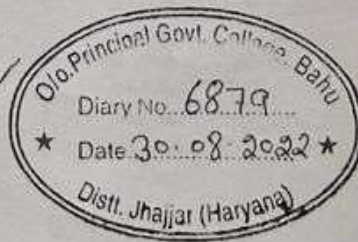 O/o.Principal Govt. College, Bahu
Diary No...6879....
Date 30.08.2022
Distt. Jhajjar (Haryana)